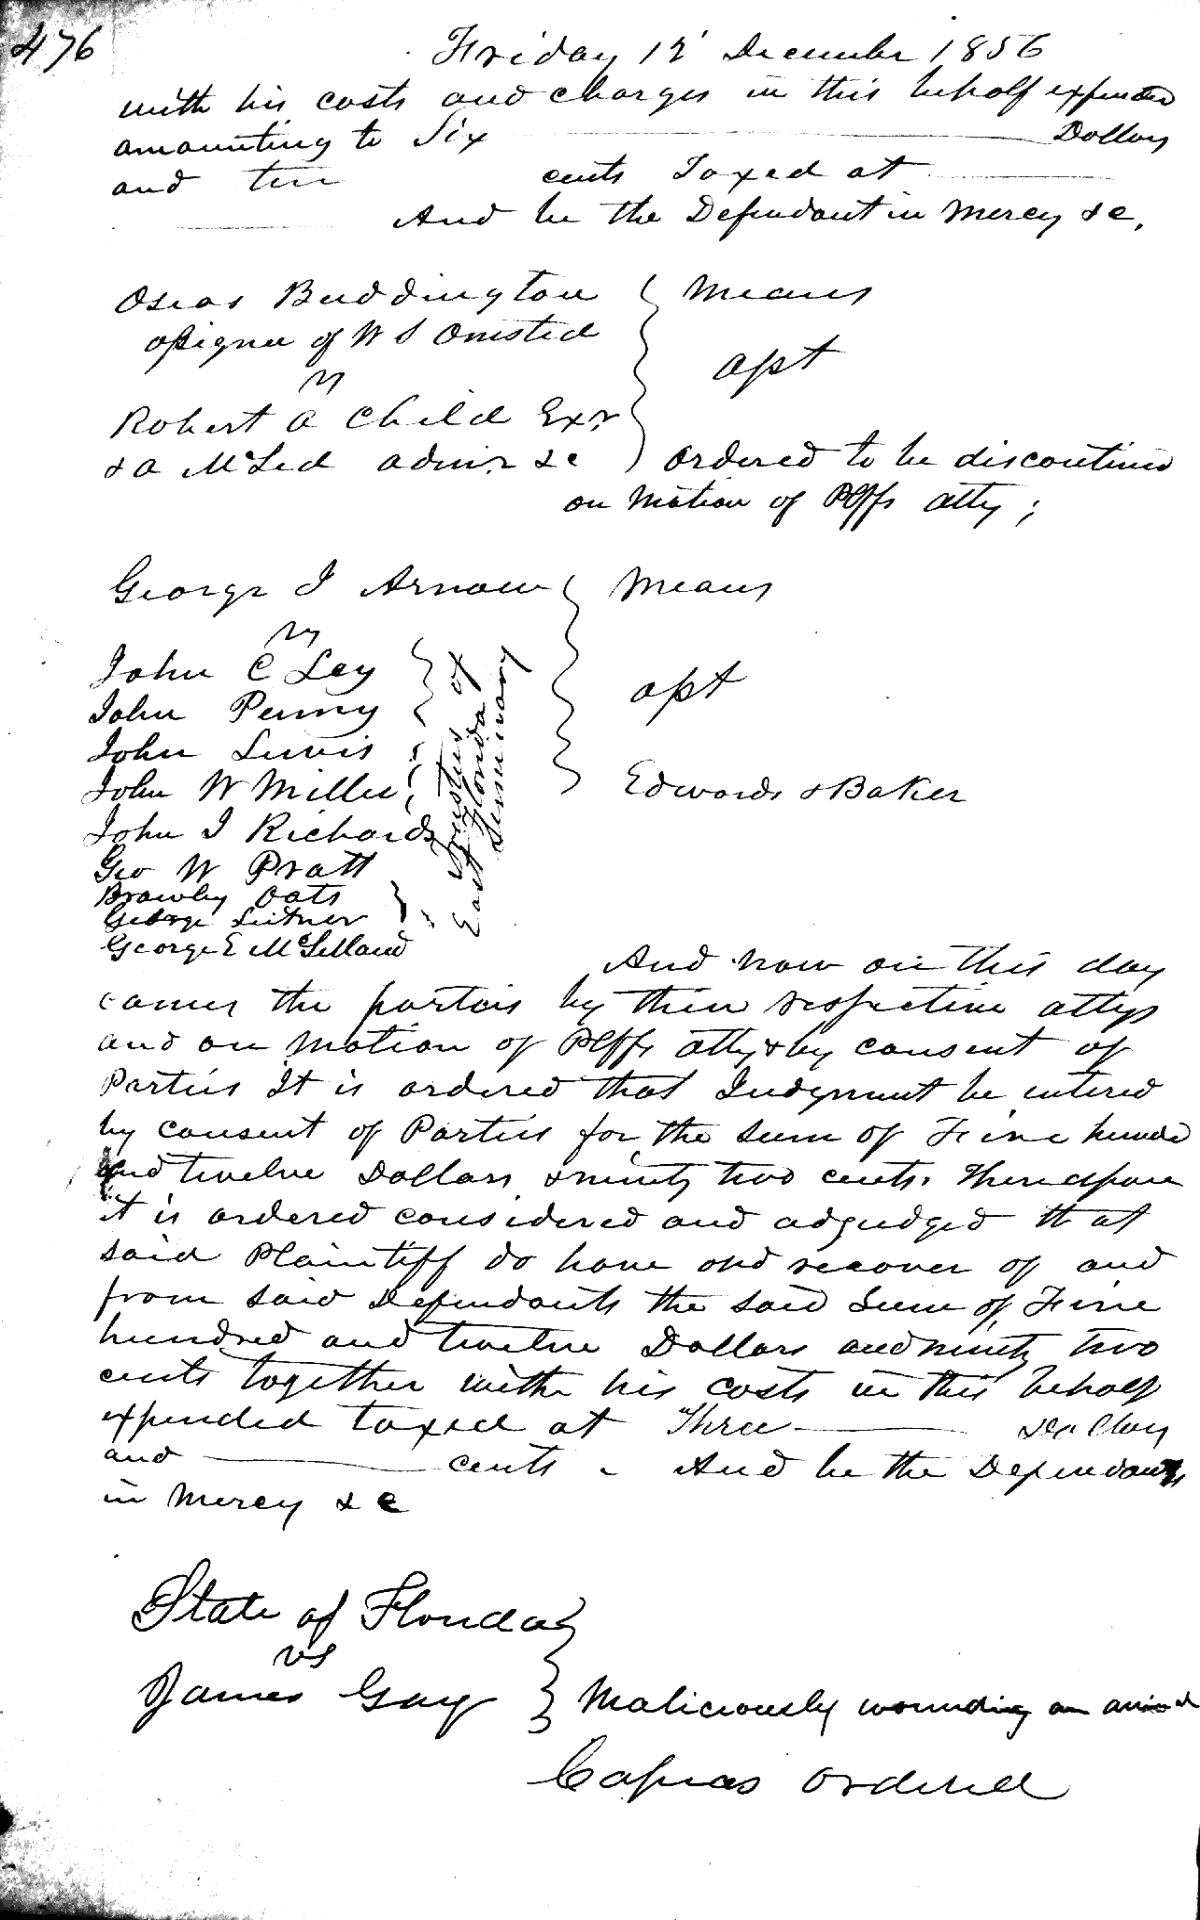 476
Friday 12 December 1856
with his costs and charges in this behalf expended
amounting to Six Dollars
and ten cents Taxed at
And be the Defendant in mercy &c.
Oseas Buddington
assignee of W S Omsted
vs
Robert A Child Exr
& A McLed admr &c
Means
apt
ordered to be discontinued
on motion of Plffs atty ;
George I Arnow
vs
John C Ley
John Penny
John Lewis
John W Miller
John I Richards
Geo W Pratt
Brawley Oats
George Leitner
George E McLelland
Trustees of
East Florida
Seminary
Means
apt
Edwards & Baker
And now on this day
comes the parties by their respective attys
and on motion of Plffs atty & by consent of
Parties It is ordered that Judgment be entered
by consent of Parties for the sum of Five hundred
and twelve Dollars & ninety two cents. Thereupon
it is ordered considered and adjudged that
said Plaintiff do have and recover of and
from said Defendants the said Sum of Five
hundred and twelve Dollars and ninety two
cents together with his costs in this behalf
expended taxed at Three Dollars
and cents - And be the Defendants
in mercy &c
State of Florida
vs
James Gay
Maliciously wounding an animal
Capias ordered